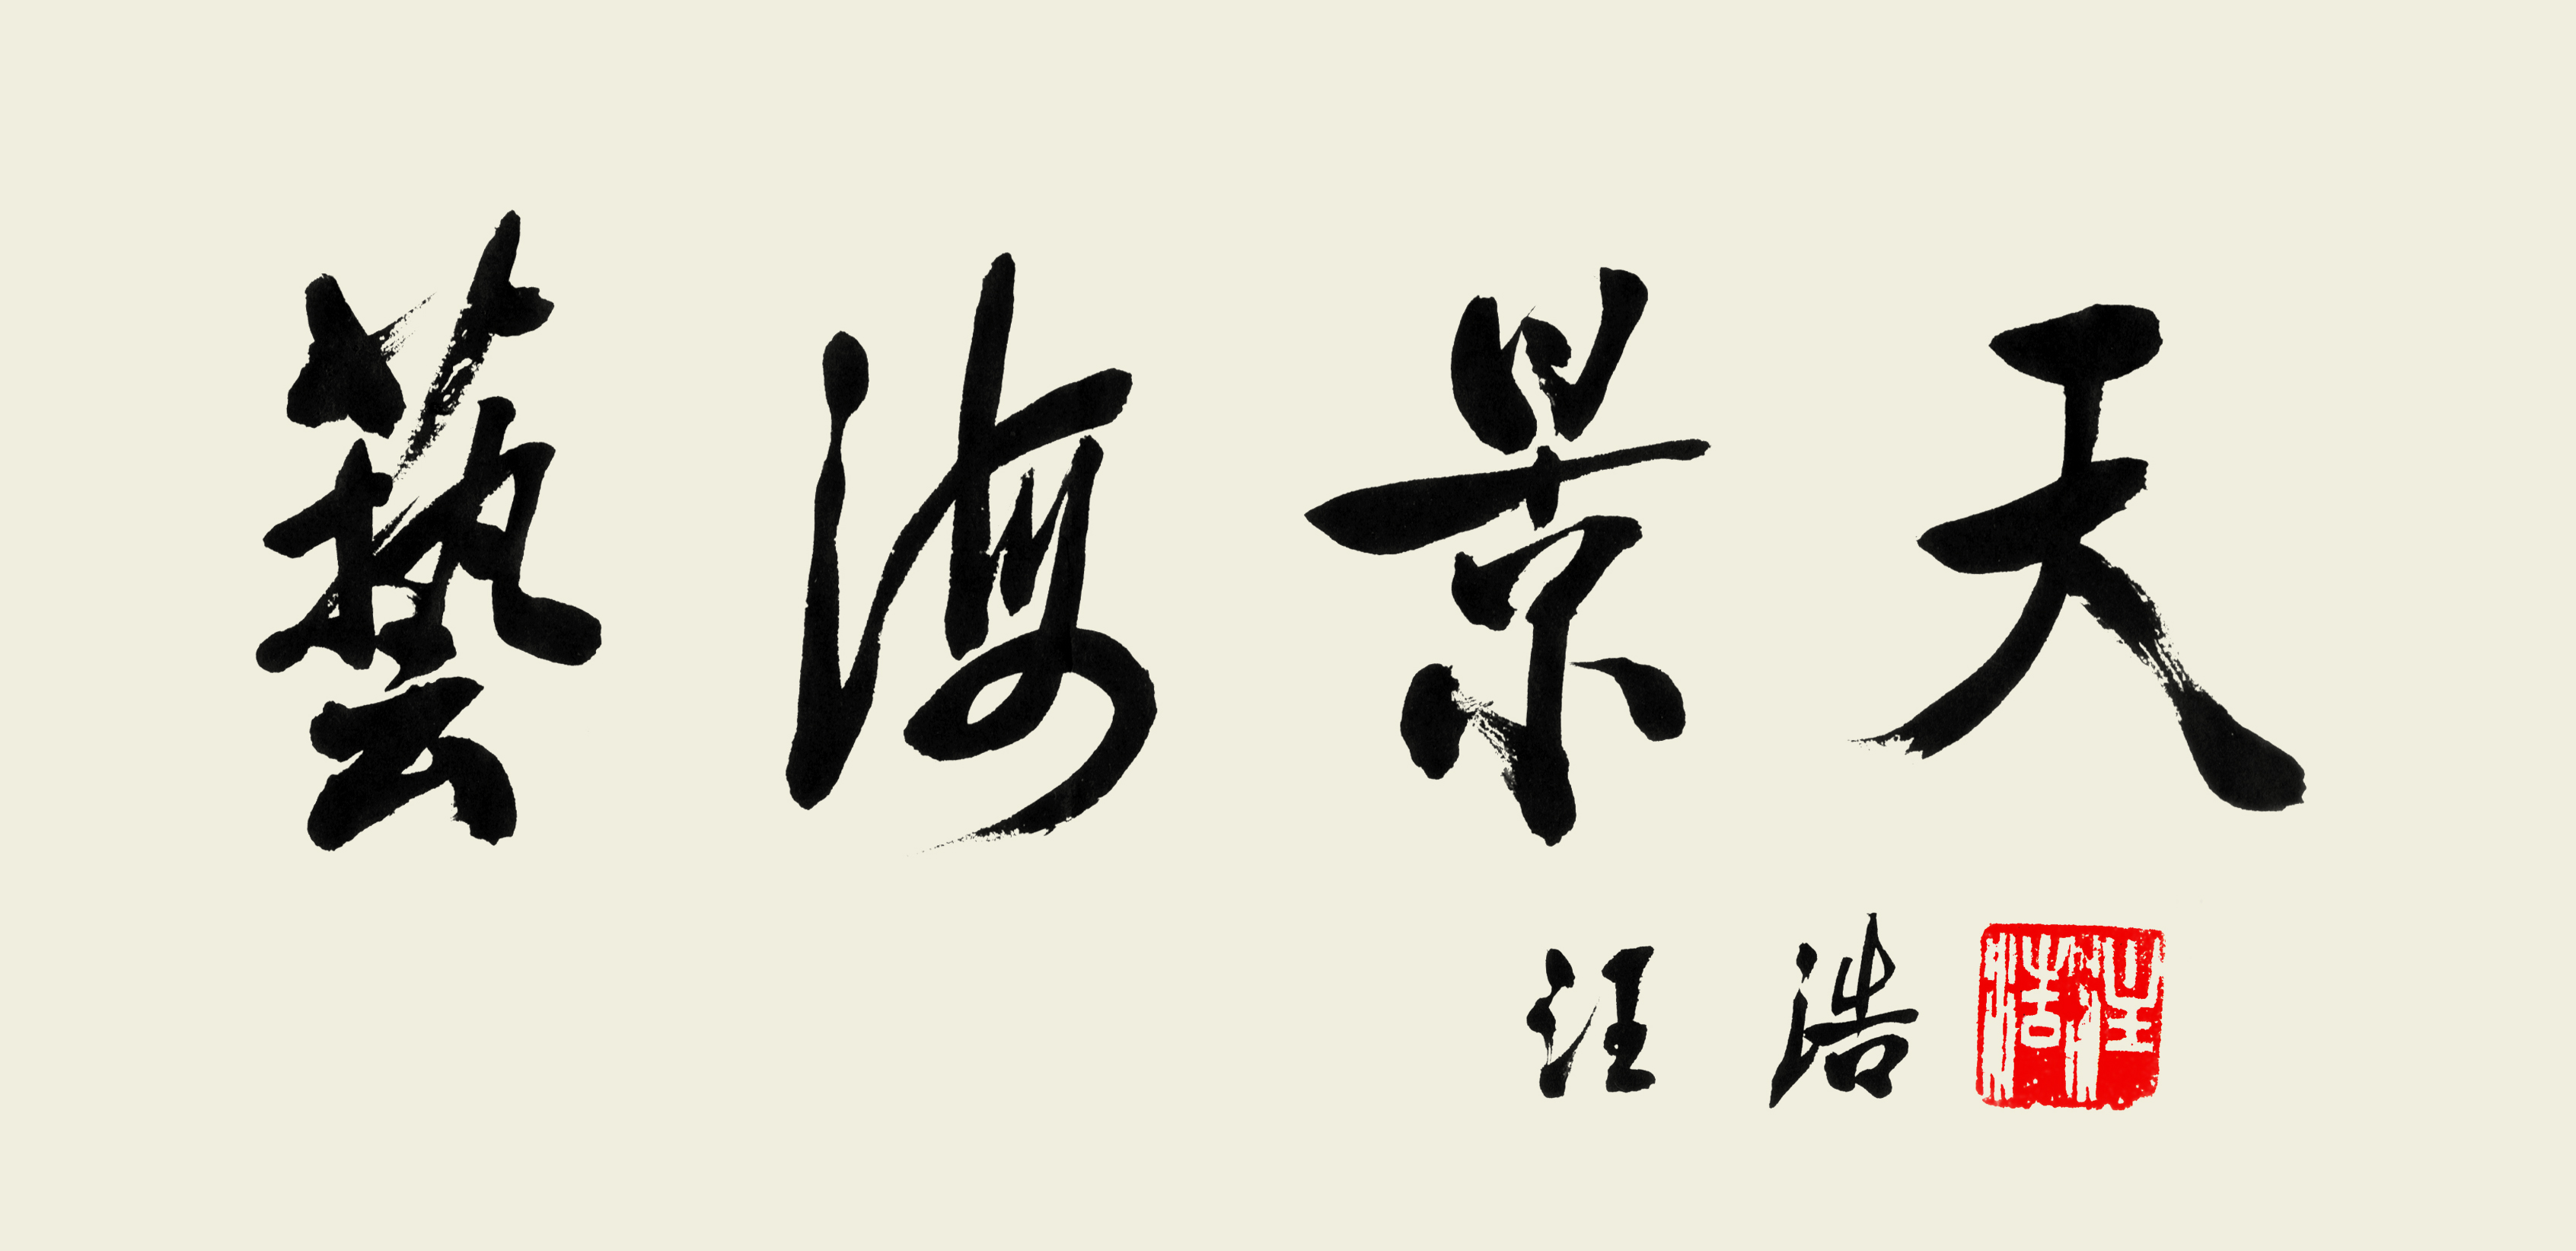 藝海景天
汪浩
汪浩